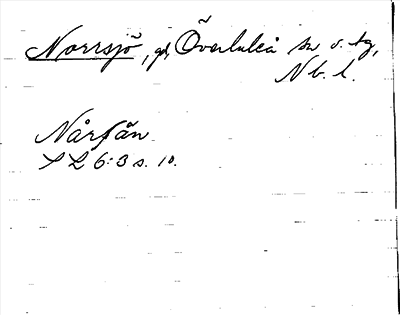 Norrsjö, gd, Överluleå sn o. tg,
Nb. l.
Nårsån
SL 6:3 s. 10.